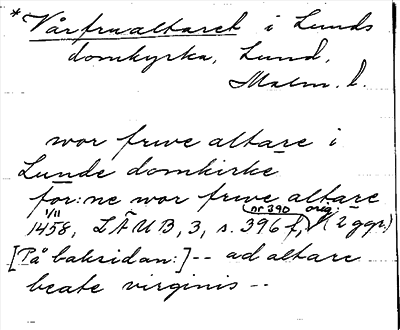 *Vårfrualtaret i Lunds
domkyrka, Lund,
Malm. l.
wor frwe altare i
Lunde domkirke
for:ne wor frwe altare
nr 390 orig.
1/11 1458, LÄUB, 3, s. 396 f, (2 ggr.)
[På baksidan:] -- ad altare
beate virginis --